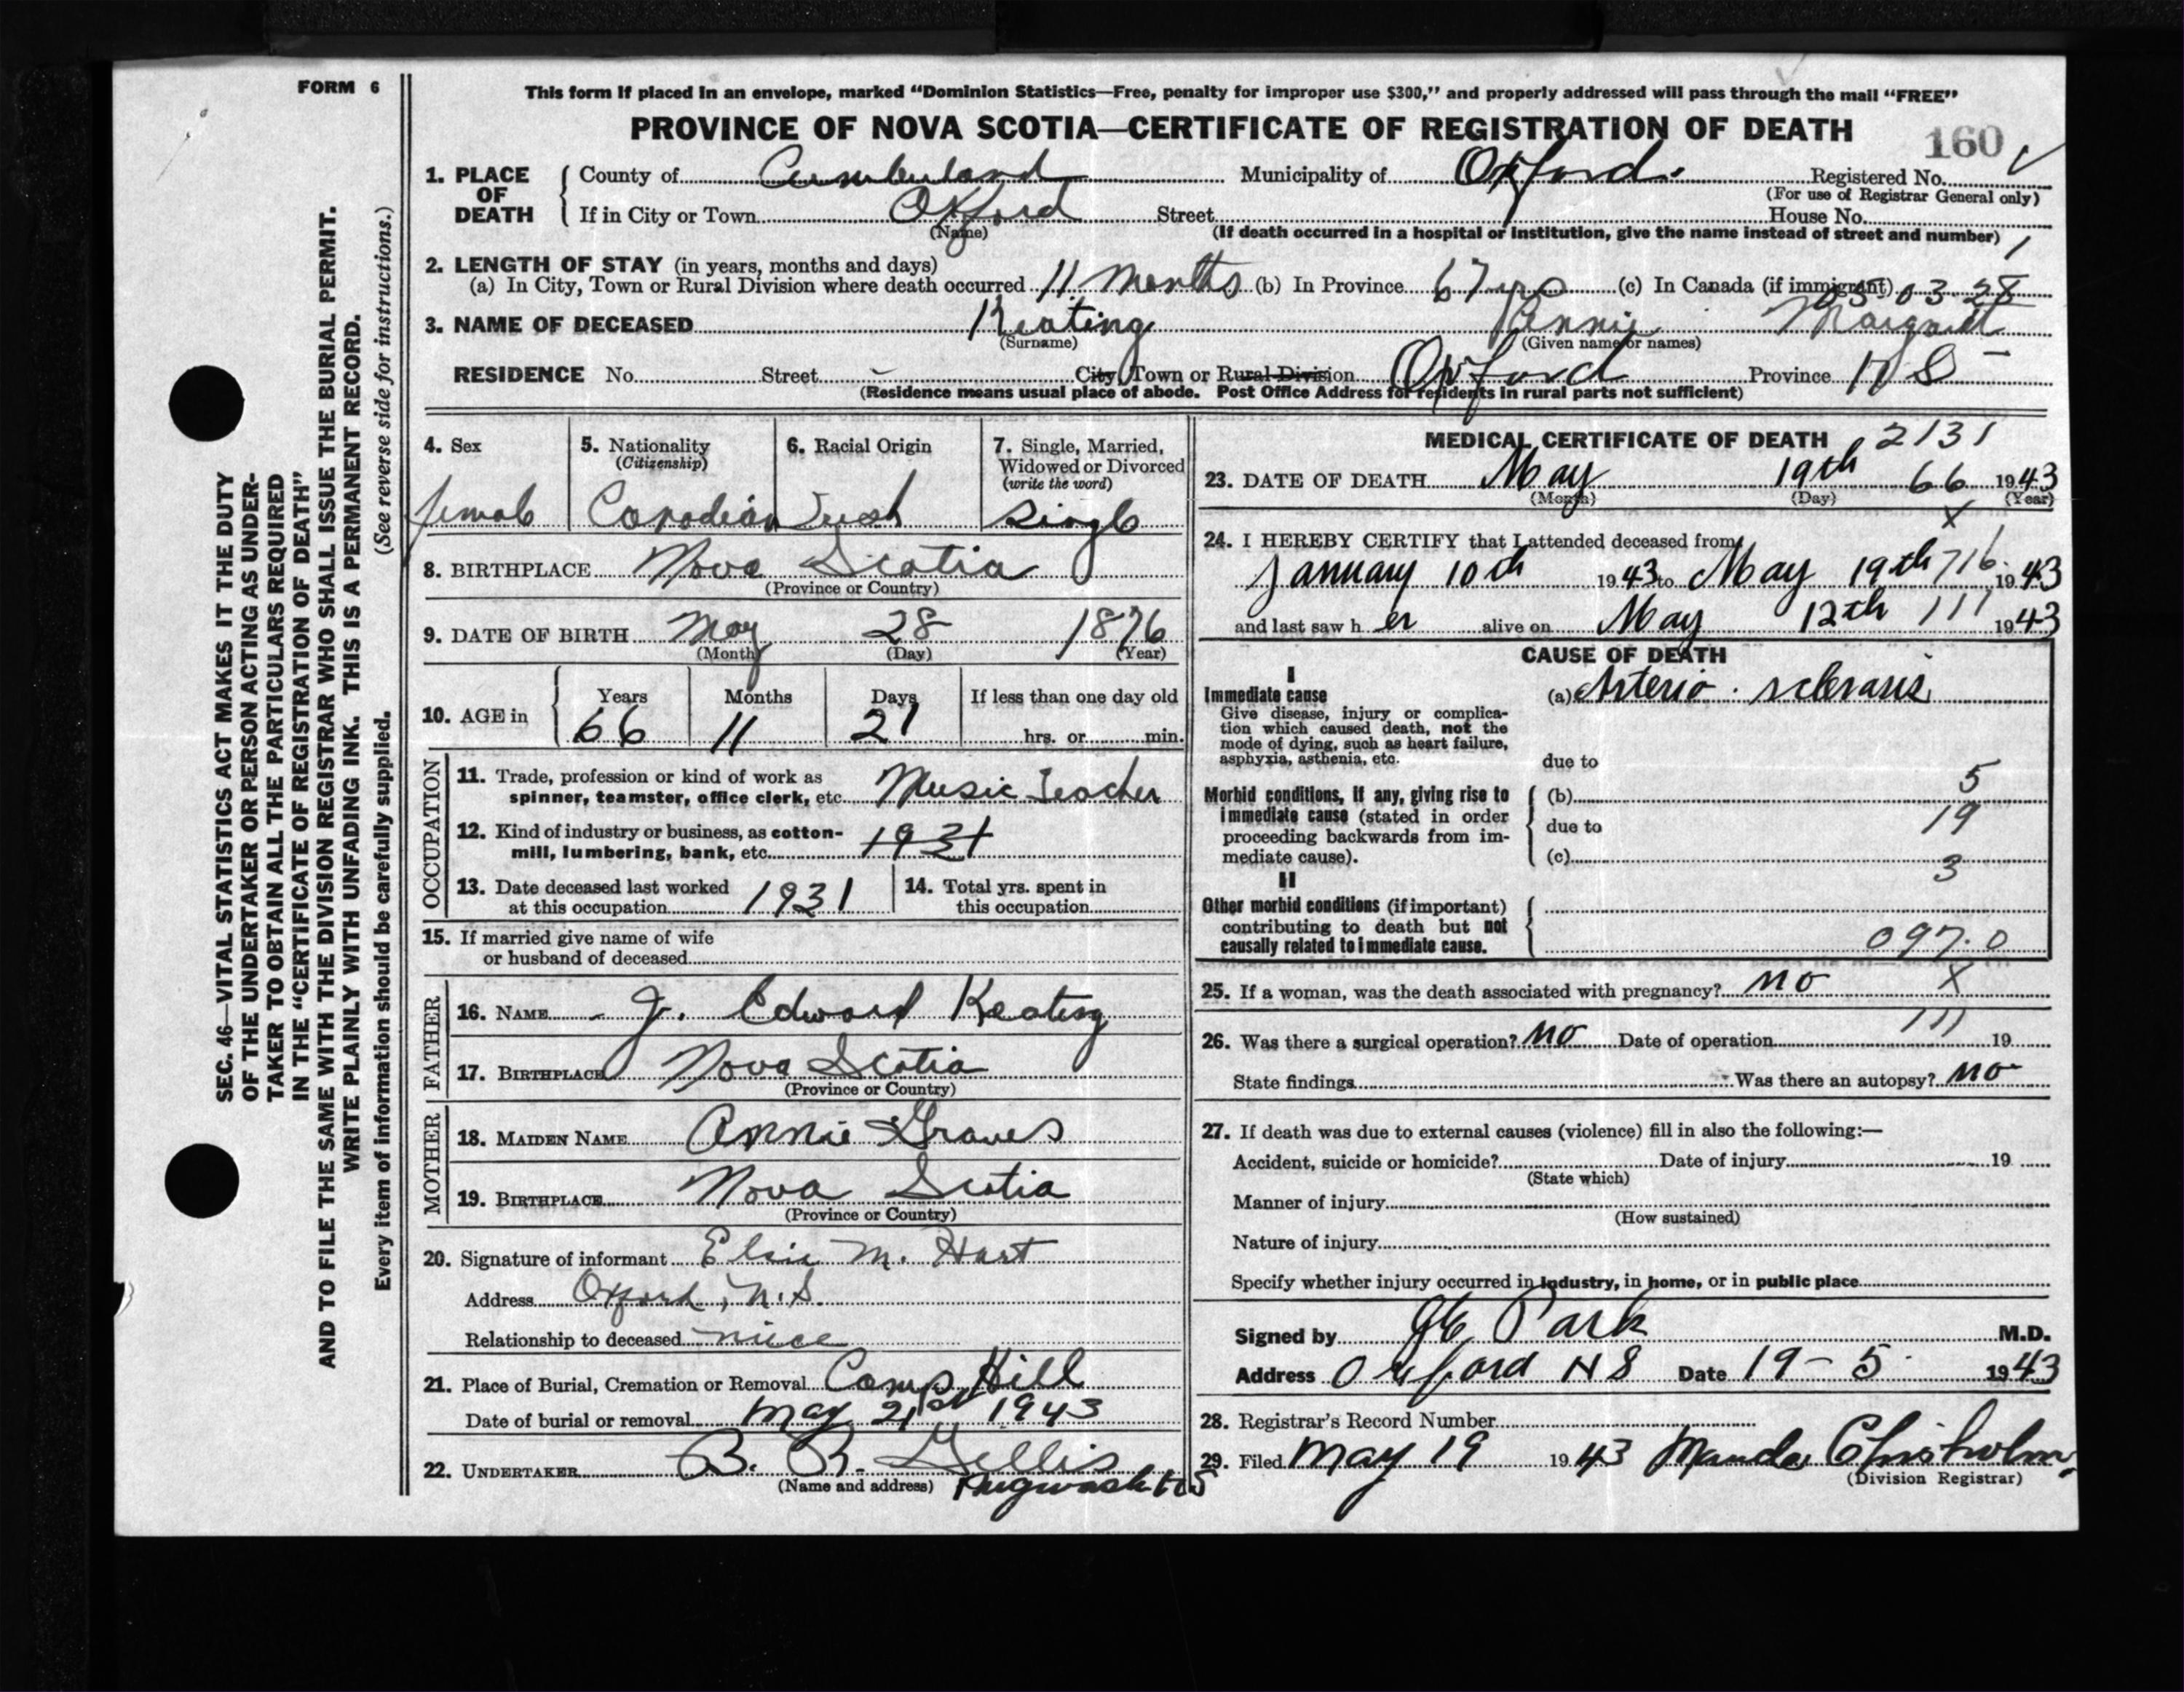 FORM 6
This form if placed in an envelope, marked "Dominion Statistics—Free, penalty for improper use $300," and properly addressed will pass through the mail "FREE"
PROVINCE OF NOVA SCOTIA—CERTIFICATE OF REGISTRATION OF DEATH
160
1. PLACE OF DEATH County of Cumberland Municipality of Oxford Registered No.
(For use of Registrar General only)
If in City or Town Oxford Street House No.
(Name) (If death occurred in a hospital or institution, give the name instead of street and number)
2. LENGTH OF STAY (in years, months and days)
(a) In City, Town or Rural Division where death occurred 11 months (b) In Province 67 yrs (c) In Canada (if immigrant)
05.03.28
3. NAME OF DECEASED Keating Annie Margaret
(Surname) (Given name or names)
RESIDENCE No. Street City, Town or Rural Division Oxford Province N S
(Residence means usual place of abode. Post Office Address for residents in rural parts not sufficient)
4. Sex
female
5. Nationality
(Citizenship)
Canadian
6. Racial Origin
Irish
7. Single, Married, Widowed or Divorced
(write the word)
Single
8. BIRTHPLACE Nova Scotia
(Province or Country)
9. DATE OF BIRTH May 28 1876
(Month) (Day) (Year)
10. AGE in Years Months Days If less than one day old
66 11 21 hrs. or min.
OCCUPATION
11. Trade, profession or kind of work as
spinner, teamster, office clerk, etc. Music Teacher
12. Kind of industry or business, as cotton-
mill, lumbering, bank, etc. 1931
13. Date deceased last worked
at this occupation 1931
14. Total yrs. spent in
this occupation
15. If married give name of wife
or husband of deceased
FATHER
16. NAME J. Edward Keating
17. BIRTHPLACE Nova Scotia
(Province or Country)
MOTHER
18. MAIDEN NAME Annie Graves
19. BIRTHPLACE Nova Scotia
(Province or Country)
20. Signature of informant Elsie M. Hart
Address Oxford, N.S.
Relationship to deceased niece
21. Place of Burial, Cremation or Removal Camp Hill
Date of burial or removal May 21st 1943
22. UNDERTAKER B. R. Gillis
(Name and address) Pugwash N S
MEDICAL CERTIFICATE OF DEATH 2131
23. DATE OF DEATH May 19th 66 1943
(Month) (Day) (Year)
X
24. I HEREBY CERTIFY that I attended deceased from
January 10th 1943 to May 19th 716 1943
and last saw her alive on May 12th 111 1943
CAUSE OF DEATH
I
Immediate cause (a) Arterio-sclerosis
Give disease, injury or complica-
tion which caused death, not the
mode of dying, such as heart failure,
asphyxia, asthenia, etc. due to
5
Morbid conditions, if any, giving rise to (b)
immediate cause (stated in order due to 19
proceeding backwards from im-
mediate cause). (c)
3
II
Other morbid conditions (if important)
contributing to death but not
causally related to immediate cause. 097.0
25. If a woman, was the death associated with pregnancy? no X
111
26. Was there a surgical operation? no Date of operation 19
State findings Was there an autopsy? no
27. If death was due to external causes (violence) fill in also the following:—
Accident, suicide or homicide? Date of injury 19
(State which)
Manner of injury
(How sustained)
Nature of injury
Specify whether injury occurred in industry, in home, or in public place
Signed by Park M.D.
Address Oxford N S Date 19-5 1943
28. Registrar's Record Number
29. Filed May 19 1943 Maude Chisholm
(Division Registrar)
SEC. 46—VITAL STATISTICS ACT MAKES IT THE DUTY
OF THE UNDERTAKER OR PERSON ACTING AS UNDER-
TAKER TO OBTAIN ALL THE PARTICULARS REQUIRED
IN THE "CERTIFICATE OF REGISTRATION OF DEATH"
AND TO FILE THE SAME WITH THE DIVISION REGISTRAR WHO SHALL ISSUE THE BURIAL PERMIT.
WRITE PLAINLY WITH UNFADING INK. THIS IS A PERMANENT RECORD.
Every item of information should be carefully supplied. (See reverse side for instructions.)